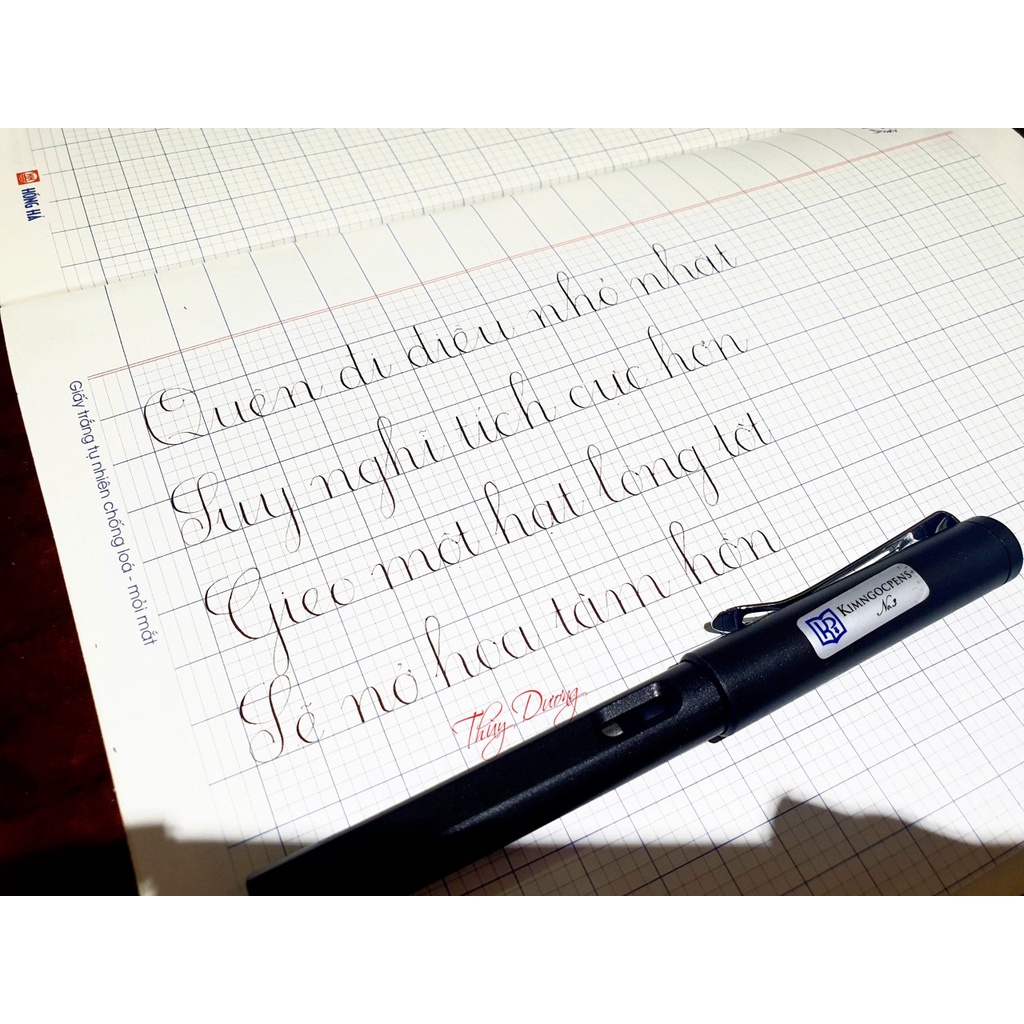 HỒNG HÀ
Giấy trắng tự nhiên chống loá - mỏi mắt
Quên đi điều nhỏ nhặt
Suy nghĩ tích cực hơn
Gieo một hạt lòng tốt
Sẽ nở hoa tâm hồn
Thùy Dương
KIMNGOCPENS
No.3